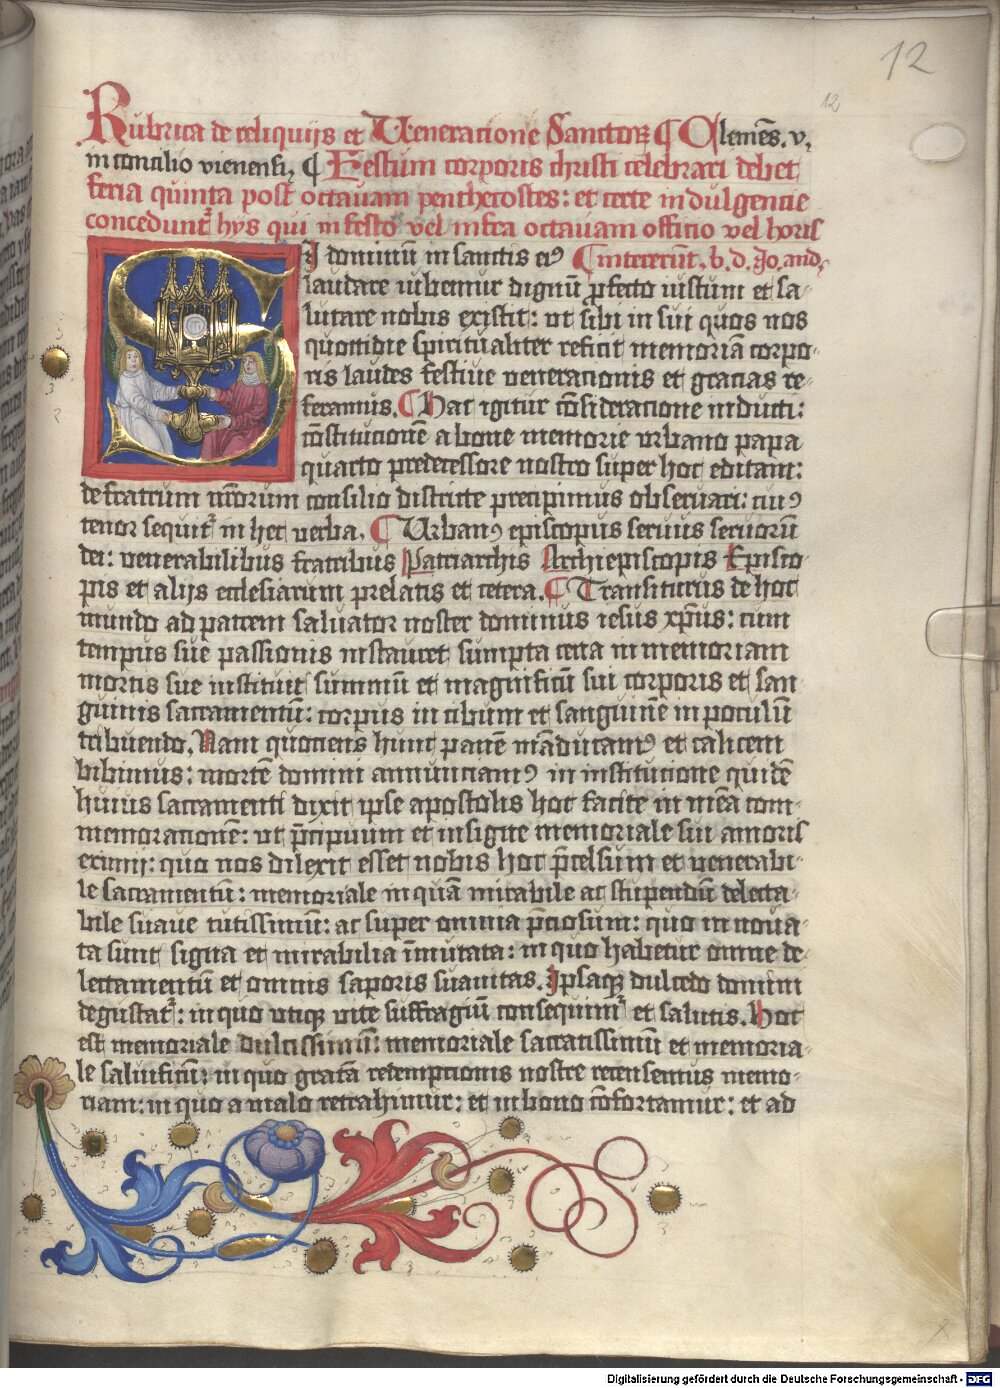 12
12
Rubrica de reliquijs et Veneracione Sanctoꝝ ¶ Clemēs. v,
in concilio vienensi, ¶ Festum corporis christi celebrari debet
feria quinta post octauam penthecostes: et certe indulgencie
concedunt᷑ hys qui in festo vel infra octauam officio vel horis
SI dominū in sanctis eiꝰ ¶ intererūt. b. d. Jo. and,
laudare iubemur dignū ꝓfecto iustum et sa-
lutare nobis existit: vt sibi in sui quos nos
quottidie spiritualiter reficit memoriā corpo-
ris laudes festiue veneracionis et gracias re-
feramus. ¶ Hac igitur cōsideracione inducti:
cōstitucionē a bone memorie vrbano papa
quarto predecessore nostro super hoc editam:
de fratrum nr̄orum consilio districte precipimus obseruari: cuiꝰ
tenor sequit᷑ in hec verba, ¶ Urbanꝰ episcopus seruus seruorū
dei: venerabilibus fratribus Patriarchis Archiepiscopis Episco
pis et alijs ecclesiarum prelatis et cetera. ¶ Transiturus de hoc
mundo ad patrem saluator noster dominus iesus xp̄us: cum
tempus sue passionis instaret sumpta cena in memoriam
mortis sue instituit summū et magnificū sui corporis et san-
guinis sacramentū: corpus in cibum et sanguinē in poculū
tribuendo, Nam quociens hunc panē māducamꝰ et calicem
bibimus: mortē domini annunciamꝰ in institucione quidē
huius sacramenti dixit ipse apostolis hoc facite in meā com-
memorationē: vt p̄cipuum et insigne memoriale sui amoris
eximij: quo nos dilexit esset nobis hoc p̄celsum et venerabi-
le sacramentū: memoriale inquā mirabile ac stupendū delecta-
bile suaue tutissimū: ac super omnia p̄ciosum: quo innoua-
ta sunt signa et mirabilia īmutata: in quo habetur omne de-
lectamentū et omnis saporis suauitas. Ipsaqꝫ dulcedo domini
degustat᷑: in quo vtiqꝫ vite suffragiū consequim᷑ et salutis. Hoc
est memoriale dulcissimū: memoriale sacratissimū et memoria-
le saluificū: in quo gratā redemptionis nostre recensemus memo-
riam: in quo a malo retrahimur: et in bono cōfortamur: et ad
Digitalisierung gefördert durch die Deutsche Forschungsgemeinschaft - DFG